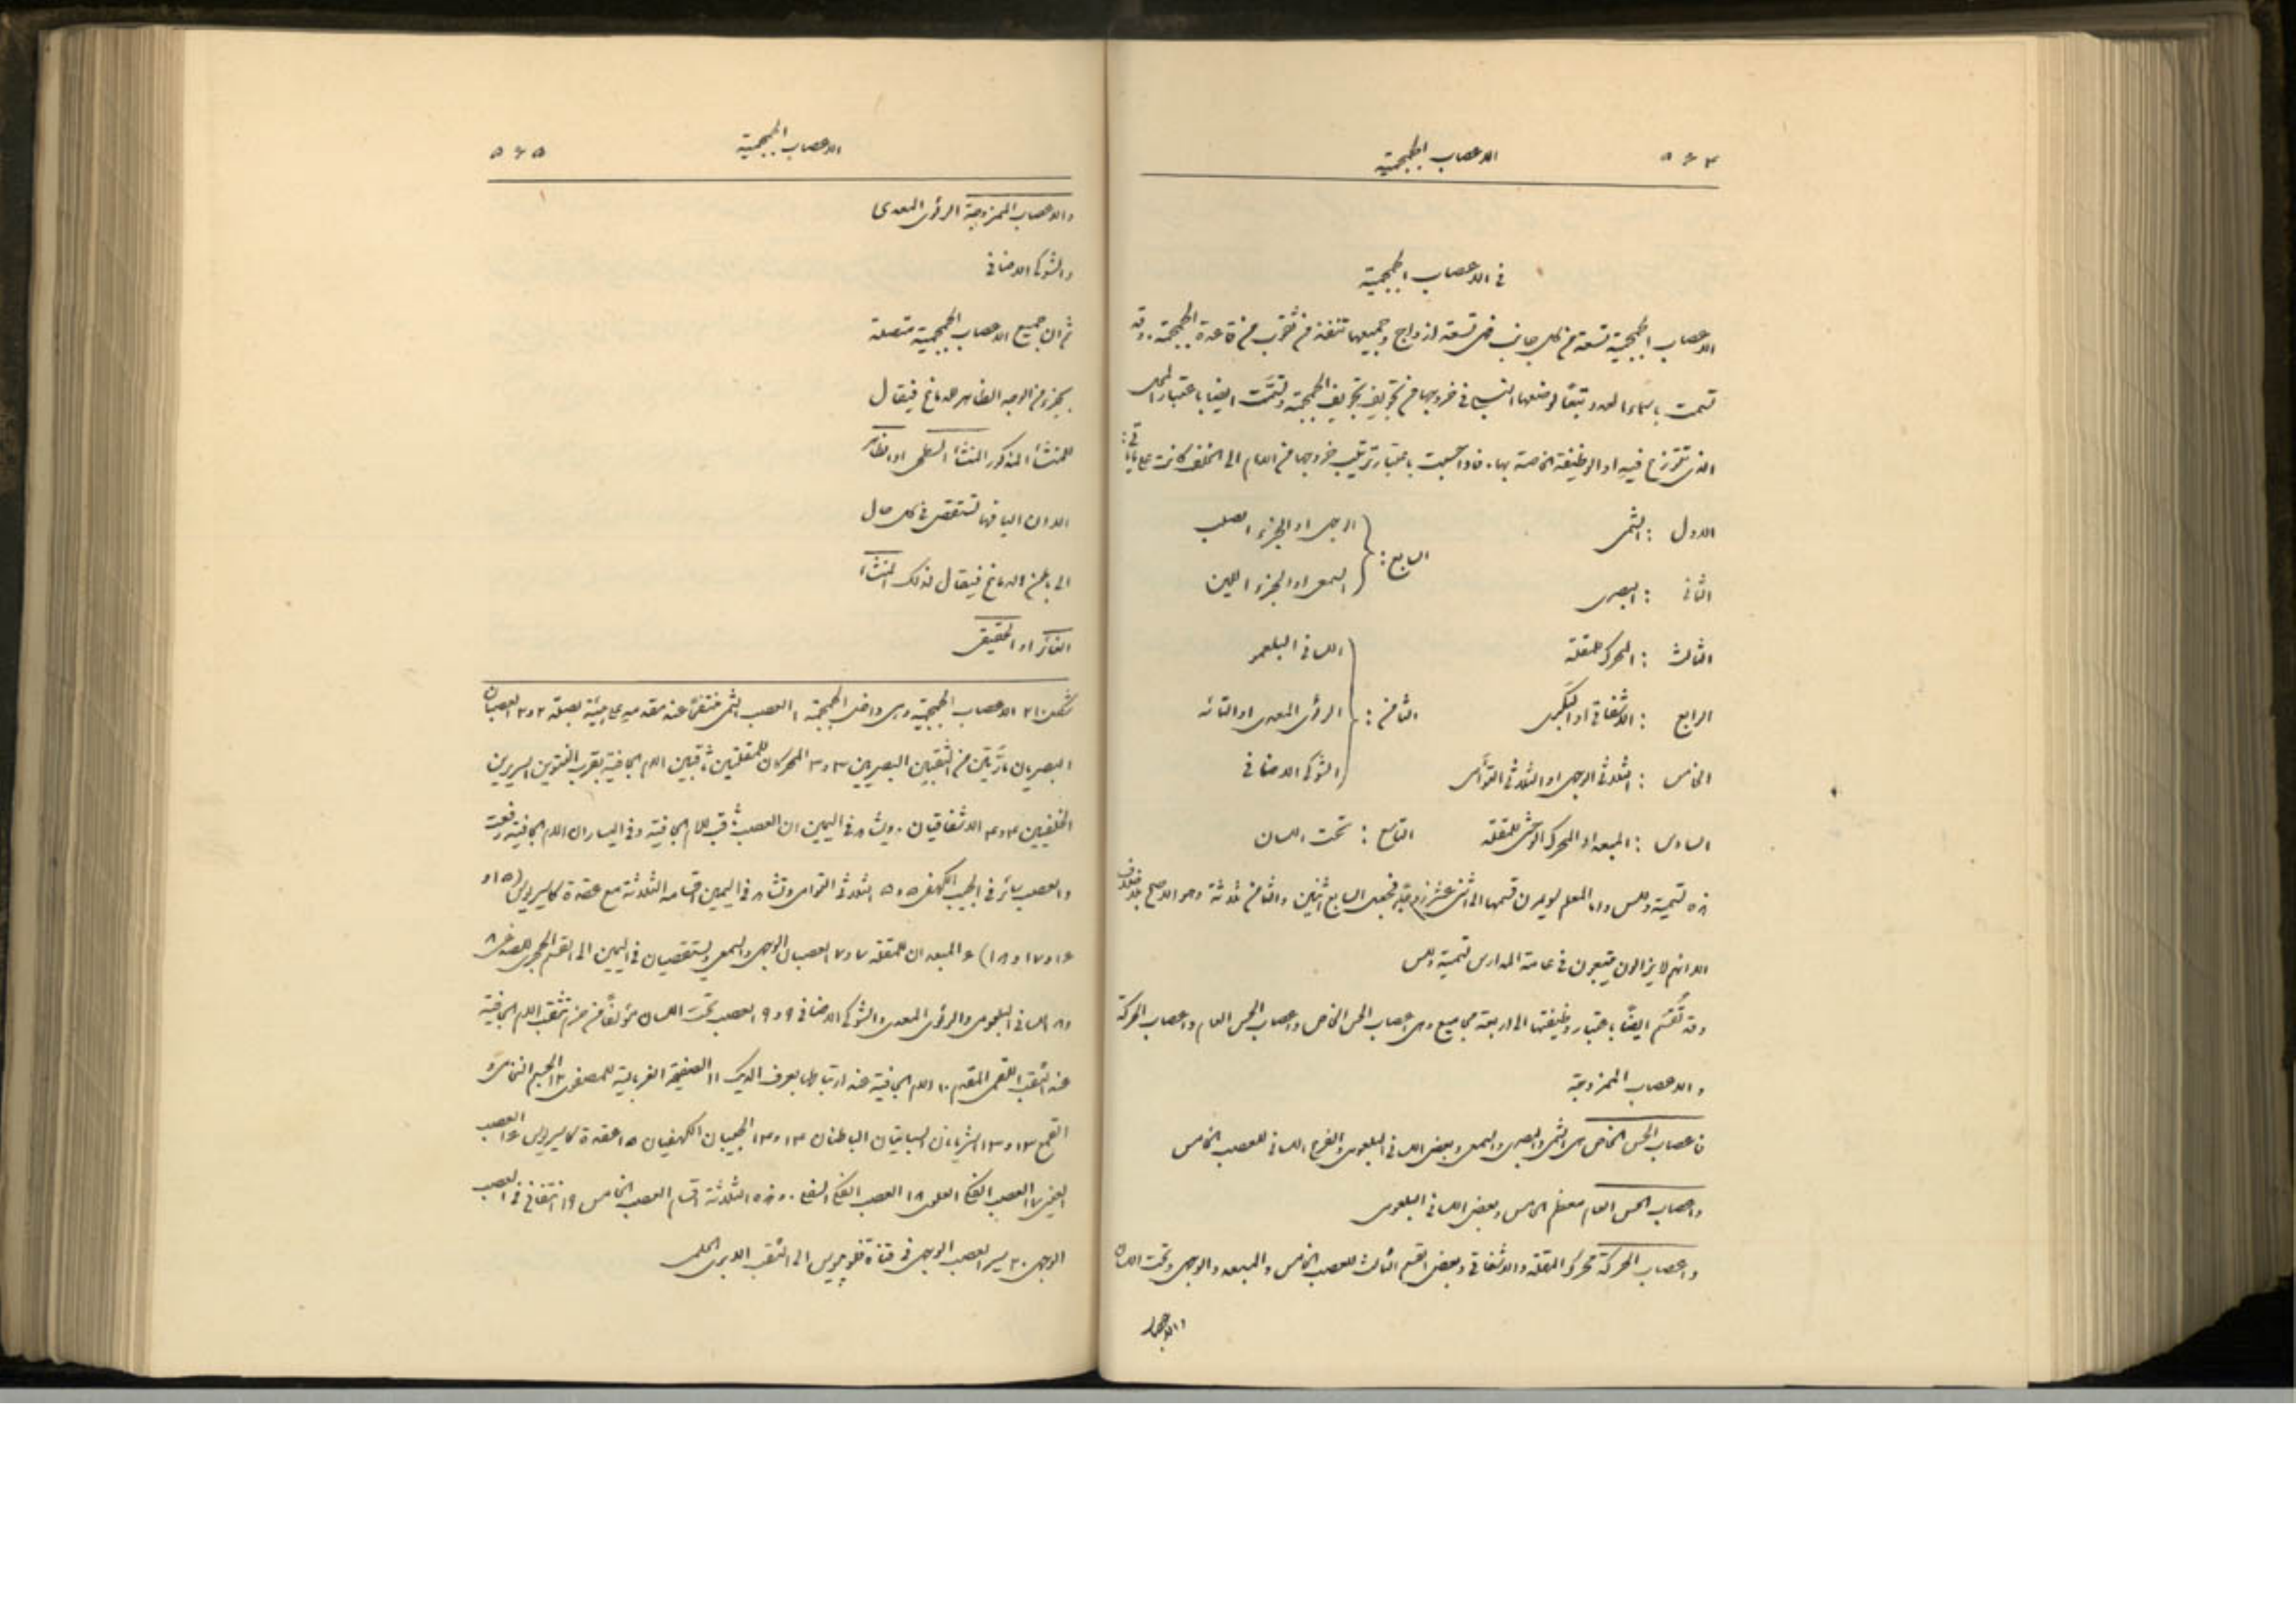 ٥٦٤ الاعصاب الجمجمية
في الاعصاب الجمجمية
الاعصاب الجمجمية تسعة من كل جانب فهي تسعة ازواج وجميعها تنفذ من ثقوب من قاعدة الجمجمة. وقد
تسمت باسماء العدد وتبعًا لوضعها النسبي في خروجها من تجويف الجمجمة وتسمّت ايضا باعتبار المحل
الذي تتوزع فيه او الوظيفة الخاصة بها. فاذا حسبت باعتبار ترتيب خروجها من الامام الى الخلف كانت على ما يأتي:
الاول : الشمي
الثاني : البصري
الثالث : المحرك للمقلة
الرابع : الاشفاقي او البكري
الخامس : الثلاثي الوجهي او الثلاثي التوأمي
السادس : المبعد او المحرك الوحشي للمقلة
السابع : الوجهي او الجزء الصلب
السمعي او الجزء اللين
الثامن : اللساني البلعومي
الرئوي المعدي او التائه
الشوكي الاضافي
التاسع : تحت اللسان
هذه تسمية ولس واما المعلم سومرن قسمها الى اثني عشر زوجًا فجعل السابع اثنين والثامن ثلاثة وهو الاصح
الا انهم لا يزالون يتبعون في عامة المدارس تسمية ولس
وقد تُقسَم ايضًا باعتبار وظيفتها الى اربعة مجاميع وهي اعصاب الحس الخاص واعصاب الحس العام واعصاب الحركة
والاعصاب الممزوجة
فاعصاب الحس الخاص هي الشمي والبصري والسمعي وبعض اللساني البلعومي والفرع اللساني للعصب الخامس
واعصاب الحس العام معظم الخامس وبعض اللساني البلعومي
واعصاب الحركة محرك المقلة والاشفاقي وبعض القسم الثالث للعصب الخامس والمبعد والوجهي وتحت اللسان
والاعصاب
الاعصاب الجمجمية ٥٦٥
والاعصاب الممزوجة الرئوي المعدي
والشوكي الاضافي
ثم ان جميع الاعصاب الجمجمية متصلة
بجزء من الوجه الظاهر للدماغ فيقال
للمنشأ المذكور المنشأ السطحي او الظاهر
الا ان اليافها تستقصى في كل حال
الى باطن الدماغ فيقال لذلك المنشأ
الغائر او الحقيقي
شكل ٢١٠ الاعصاب الجمجمية وهي داخل الجمجمة ١ العصب الشمي منتفخًا عند مقدمه على هيئة بصلة ٢ و٢ العصبان
البصريان مارّين من الثقبين البصريين ٣ و٣ المحركان للمقلتين ثاقبين الام الجافية بقرب النتوين السريريين
الخلفيين ٤ و٤ الاشفاقيان. ويشاهد في اليمين ان العصب ثاقب للام الجافية وفي اليسار ان الام الجافية رفعت
والعصب سائر في الجيب الكهفي ٥ و٥ الثلاثي التوأمي وتشاهد في اليمين اقسامه الثلاثة مع عقدة كاسيريوس (١٥ و
١٦ و١٧ و١٨) ٦ المبعدان للمقلة ٧ و٧ العصبان الوجهي والسمعي يستقصيان في اليمين الى القسم الحجري للصدغي ٨
و٨ اللساني البلعومي والرئوي المعدي والشوكي الاضافي ٩ و٩ العصب تحت اللسان مؤلفًا من حزم تثقب الام الجافية
عند الثقب اللقمي المقدم ١٠ الام الجافية عند ارتباطها بعرف الديك ١١ الصفيحة الغربالية للمصفوي ١٢ الجسم النخامي و
القمع ١٣ و١٣ الشريانان السباتيان الباطنان ١٤ و١٤ الجيبان الكهفيان ١٥ عقدة كاسيريوس ١٦ العصب
العيني ١٧ العصب الفكي العلوي ١٨ العصب الفكي السفلي. وهذه الثلاثة اقسام العصب الخامس ١٩ انتفاخ في العصب
الوجهي ٢٠ يسير العصب الوجهي في قناة فلوبيوس الى الثقب الابري الحلمي